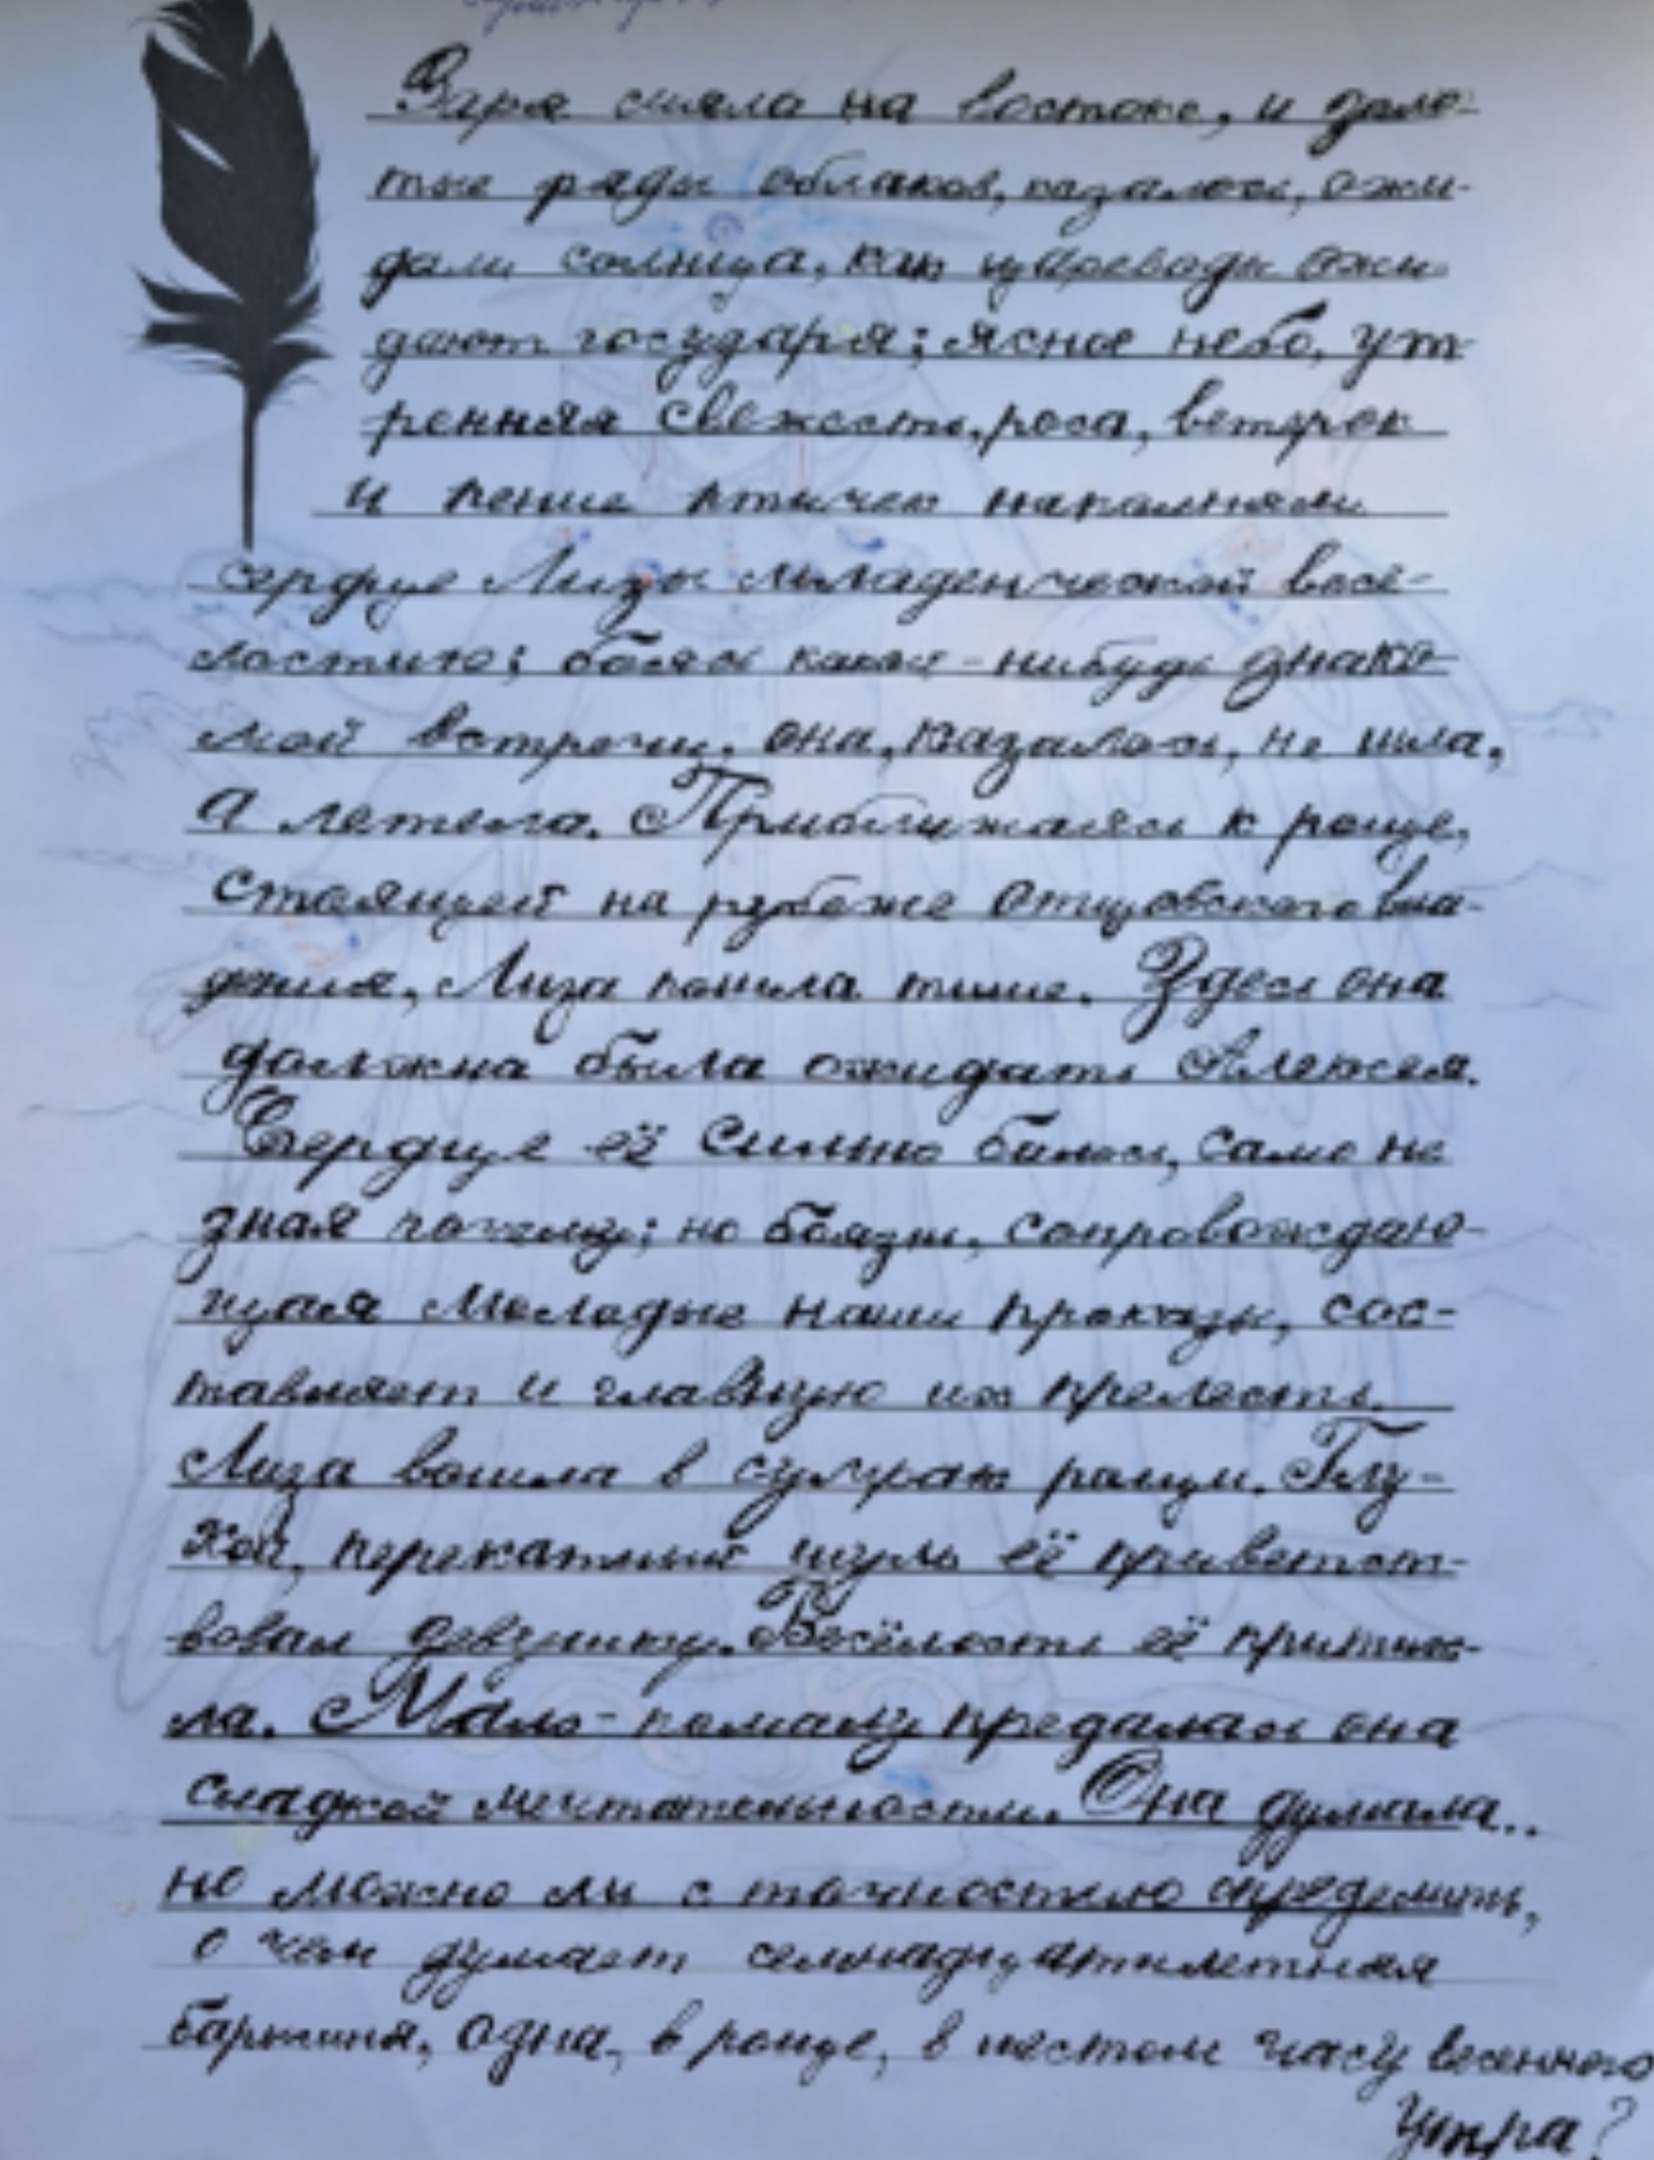 Заря сияла на востоке, и золо-
тые ряды облаков, казалось, ожи-
дали солнца, как царедворцы ожи-
дают государя; ясное небо, ут-
ренняя свежесть, роса, ветерок
и пение птичек наполняли
сердце Лизы младенческой весё-
лостию; боясь какой-нибудь знако-
мой встречи, она, казалось, не шла,
а летела. Приближаясь к роще,
стоящей на рубеже отцовского вла-
дения, Лиза пошла тише. Здесь она
должна была ожидать Алексея.
Сердце её сильно билось, само не
зная почему; но боязнь, сопровождаю-
щая молодые наши проказы, сос-
тавляет и главную их прелесть.
Лиза вошла в сумрак рощи. Глу-
хой, перекатный шум её приветст-
вовал девушку. Весёлость её притих-
ла. Мало-помалу предалась она
сладкой мечтательности. Она думала..
но можно ли с точностию определить,
о чем думает семнадцатилетняя
барышня, одна, в роще, в шестом часу весеннего
утра?